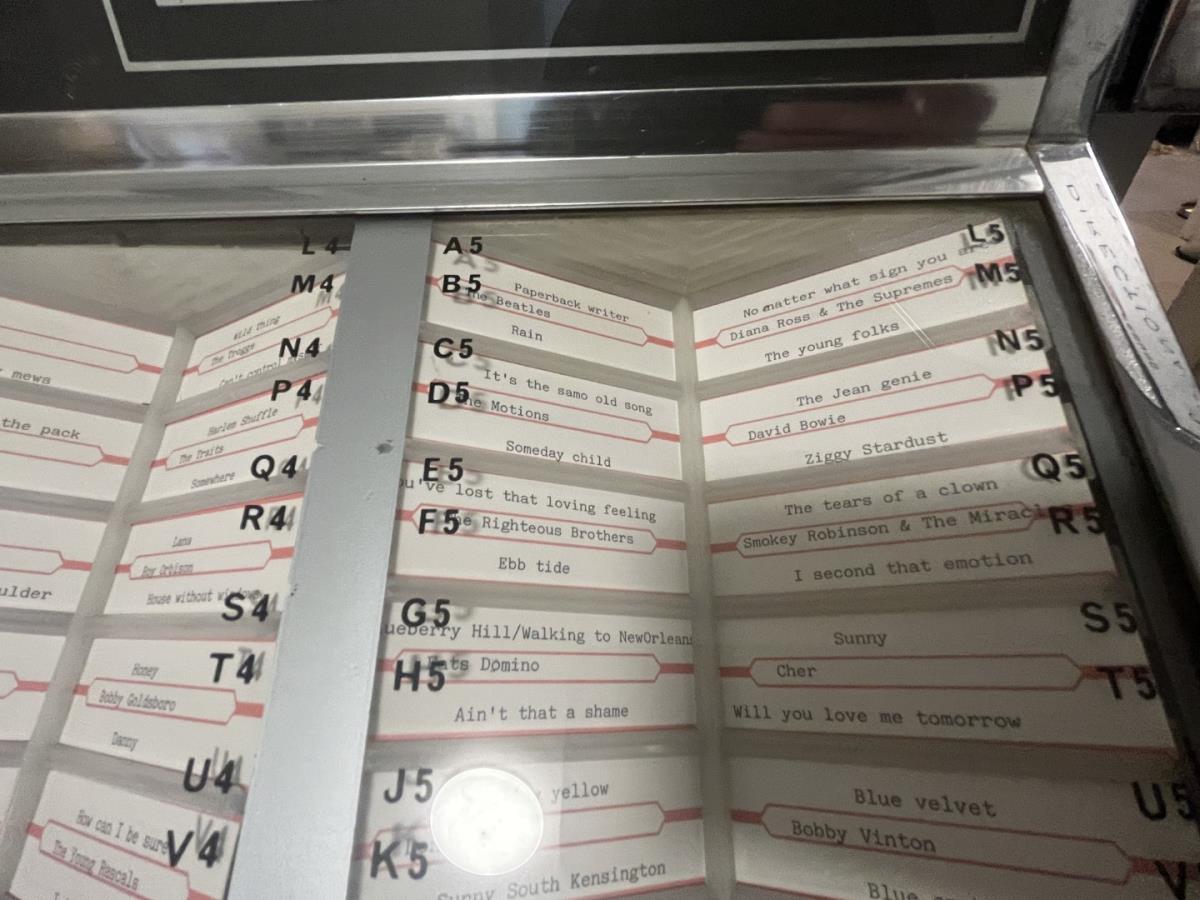 mews
the pack
ulder
L4
M4
Wild thing
The Troggs
N4
P4
Harlem Shuffle
The Traits
Somewhere
Q4
R4
Lana
Roy Orbison
House without windows
S4
T4
Honey
Bobby Goldsboro
Danny
U4
V4
How can I be sure
The Young Rascals
A5
B5
Paperback writer
The Beatles
Rain
C5
D5
It's the samo old song
The Motions
Someday child
E5
F5
ou've lost that loving feeling
The Righteous Brothers
Ebb tide
G5
H5
ueberry Hill/Walking to NewOrleans
Fats Domino
Ain't that a shame
J5
K5
yellow
Sunny South Kensington
L5
M5
No matter what sign you are
Diana Ross & The Supremes
The young folks
N5
P5
The Jean genie
David Bowie
Ziggy Stardust
Q5
R5
The tears of a clown
Smokey Robinson & The Miracl
I second that emotion
S5
T5
Sunny
Cher
Will you love me tomorrow
U5
V
Blue velvet
Bobby Vinton
Blue
DIRECTIONS